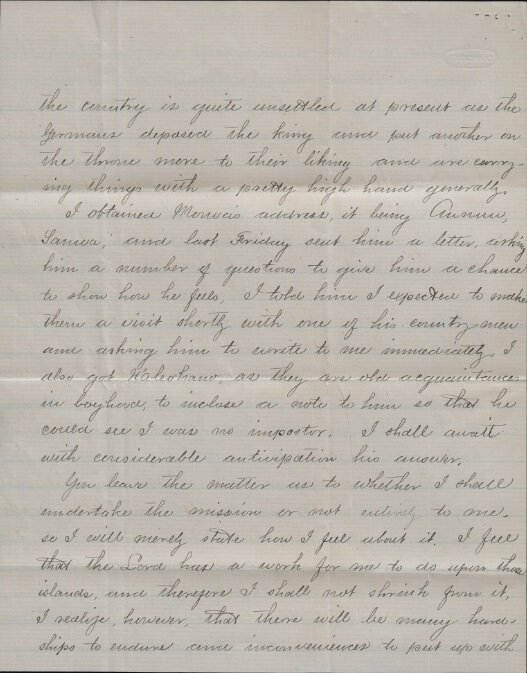 the country is quite unsettled at present as the
Germans deposed the king and put another on
the throne more to their liking and are carry-
ing things with a pretty high hand generally.
I obtained Manoa's address, it being Aunuu,
Samoa, and last Friday sent him a letter, asking
him a number of questions to give him a chance
to show how he feels, I told him I expected to make
them a visit shortly with one of his country men
and asking him to write to me immediately. I
also got Kaleohano, as they are old acquaintances
in boyhood, to inclose a note to him so that he
could see I was no impostor. I shall await
with considerable anticipation his answer.
You leave the matter as to whether I shall
undertake the mission or not entirely to me.
so I will merely state how I feel about it. I feel
that the Lord has a work for me to do upon those
islands, and therefore I shall not shrink from it.
I realize, however, that there will be many hard-
ships to endure and inconveniences to put up with